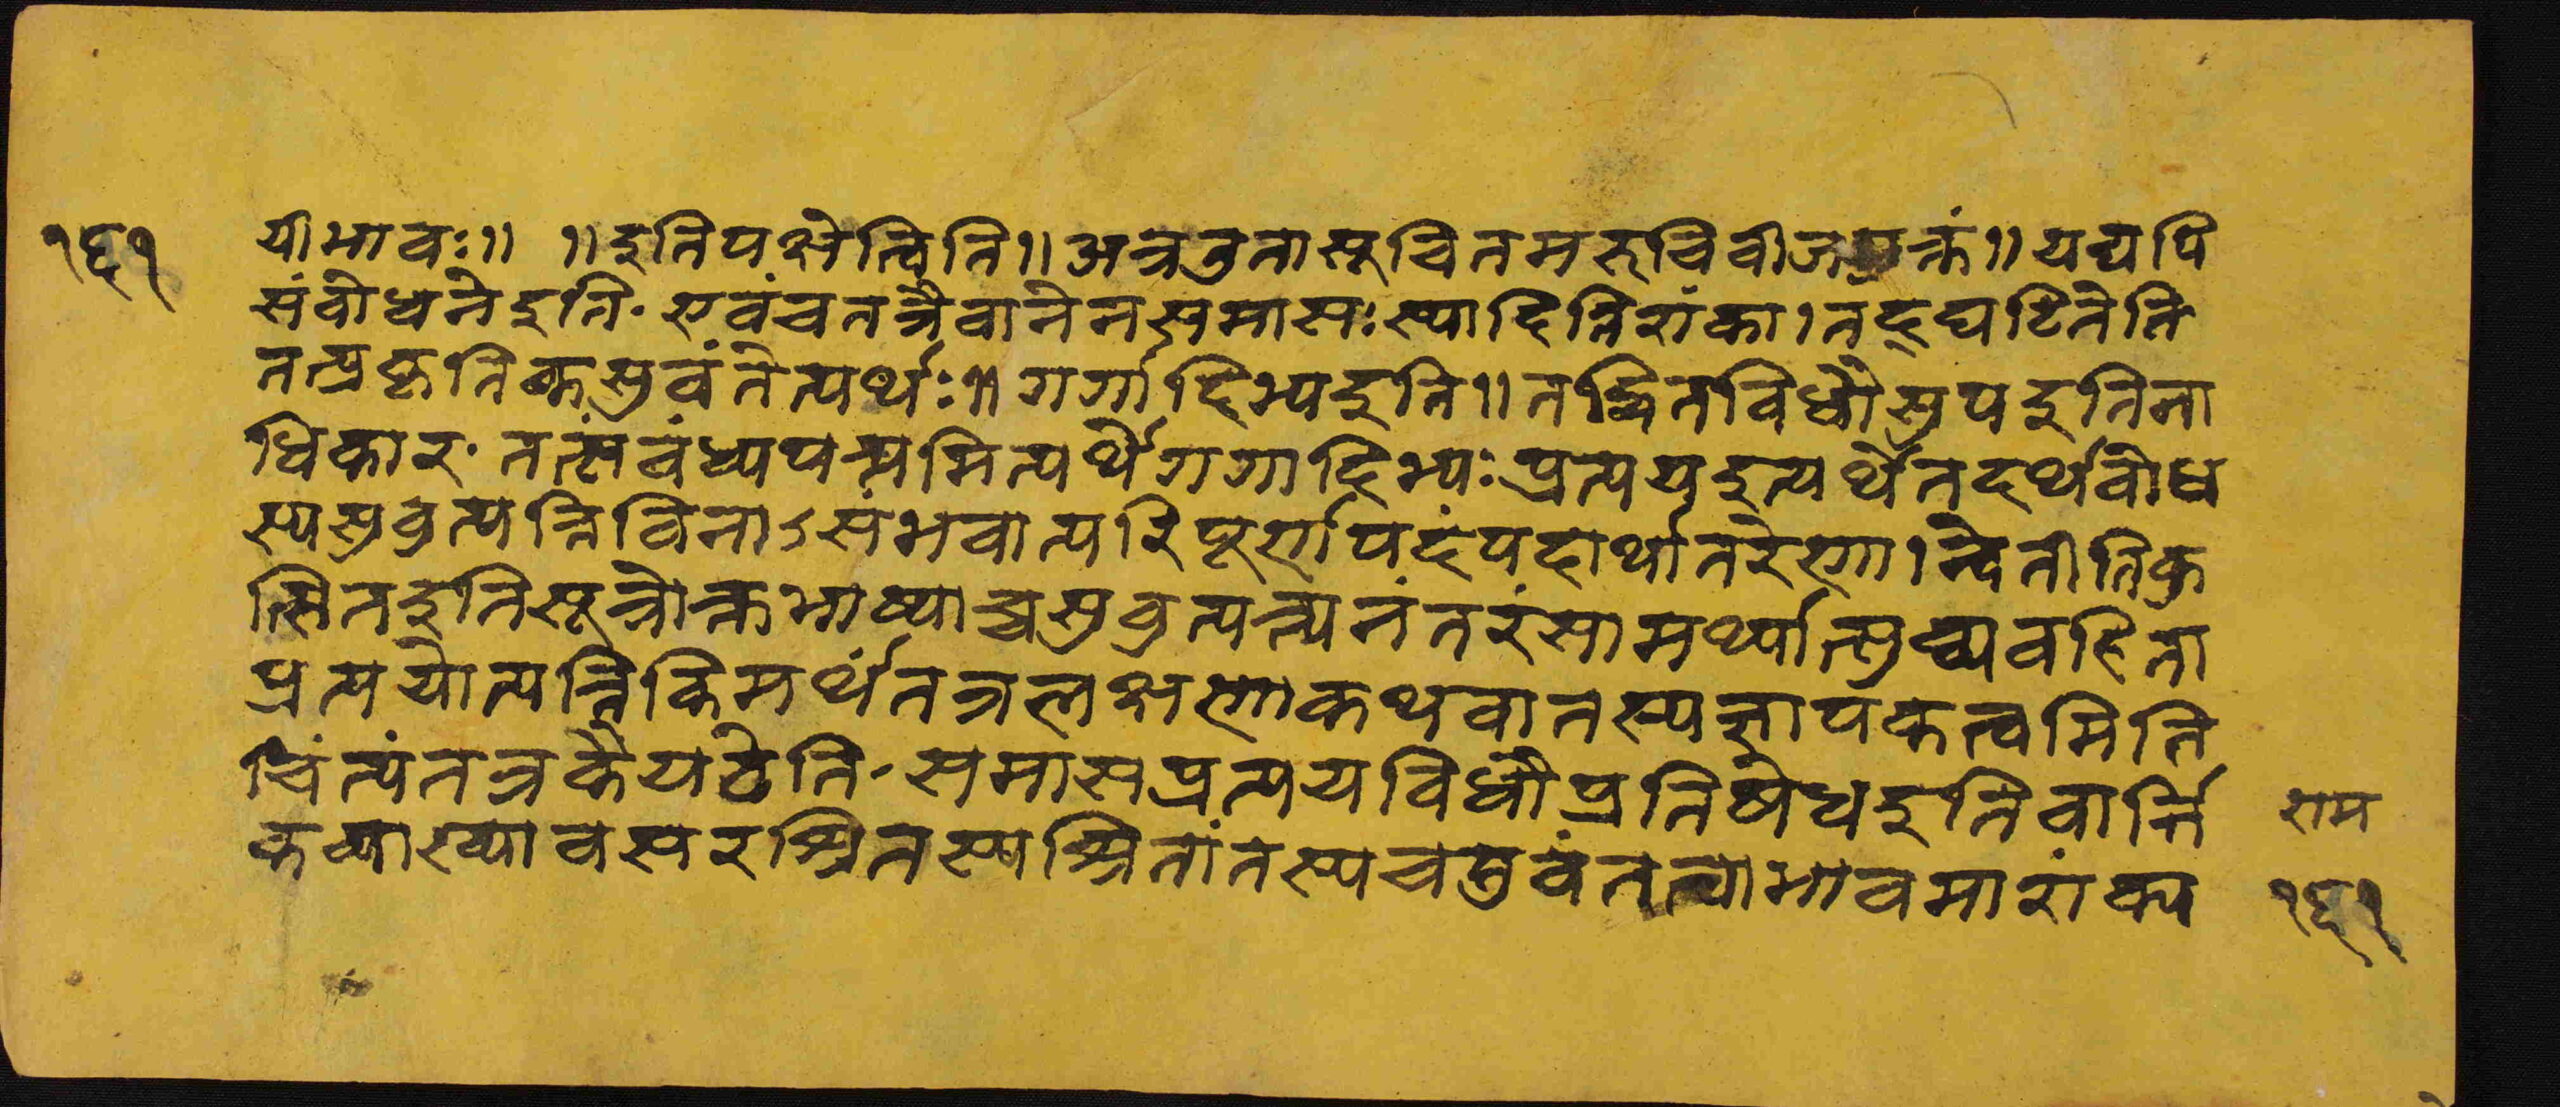 १६१
यीभावः॥ ॥इतिपक्षेत्विति॥अत्रतुनासूचितमरुचिबीजमुक्तं॥यद्यपि
संबोधनेइति॰एवंचतत्रैवानेनसमासःस्यादितिशंका।तद्घटितेति
तत्प्रकृतिकसुबंतेत्यर्थः॥गर्गादिभ्यइति॥तद्धितविधौसुपइतिना
धिकार॰तत्संबंध्यपत्यमित्यर्थेगर्गादिभ्यःप्रत्ययइत्यर्थेतदर्थबोध
स्यसुबुत्पत्तिंविनाऽसंभवात्परिपूर्णपदंपदार्थांतरेणान्वेतीतिकु
त्सितइतिसूत्रोक्तभाष्याच्चसुबुत्पत्त्यनंतरंसामर्थ्यात्सुब्व्यवहिता
प्रत्ययोत्पत्तिकिमर्थंतत्रलक्षणाकथवातस्यज्ञापकत्वमिति
चिंत्यंतत्रकैयटेति॰समासप्रत्ययविधौप्रतिषेधइतिवार्त्ति
कव्याख्यावसरश्रितस्यश्रितांतस्यचसुबंतत्वाभावमाशंक्य
राम
१६१